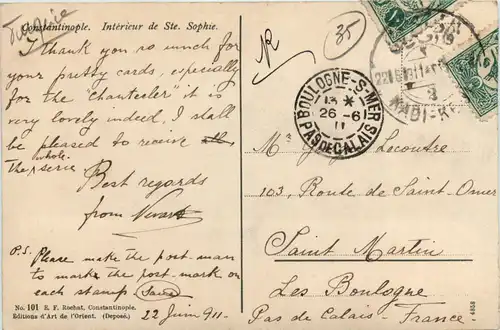 Turquie
Constantinople. Intérieur de Ste. Sophie.
Thank you so much for
your pretty cards, especially
for the "chantecler" it is
very lovely indeed, I shall
be pleased to receive
whole.
The serie
Best regards
from
P.S. Please make the post-man
to mark the post-mark on
each stamp.
22 Juin 911.
No. 101 E. F. Rochat, Constantinople.
Editions d'Art de l'Orient. (Deposé.)
35
BOULOGNE-S-MER
13 *
26-6
11
PAS DE CALAIS
Lecoutre
103, Route de Saint-Omer
Saint Martin
Les Boulogne
Pas de Calais France